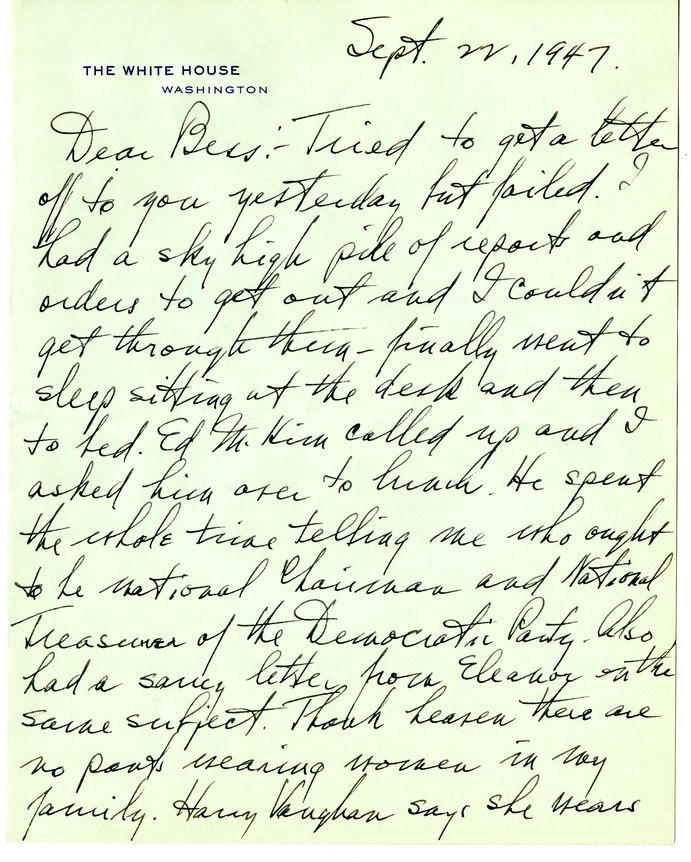 Sept. 22, 1947.
THE WHITE HOUSE
WASHINGTON
Dear Bess:- Tried to get a letter
off to you yesterday but failed. I
had a sky high pile of reports and
orders to get out and I couldn't
get through them - finally went to
sleep sitting at the desk and then
to bed. Ed McKim called up and I
asked him over to lunch. He spent
the whole time telling me who ought
to be national Chairman and National
Treasurer of the Democratic Party. Also
had a saucy letter from Eleanor on the
same subject. Thank heaven there are
no pants wearing women in my
family. Harry Vaughan says she wears